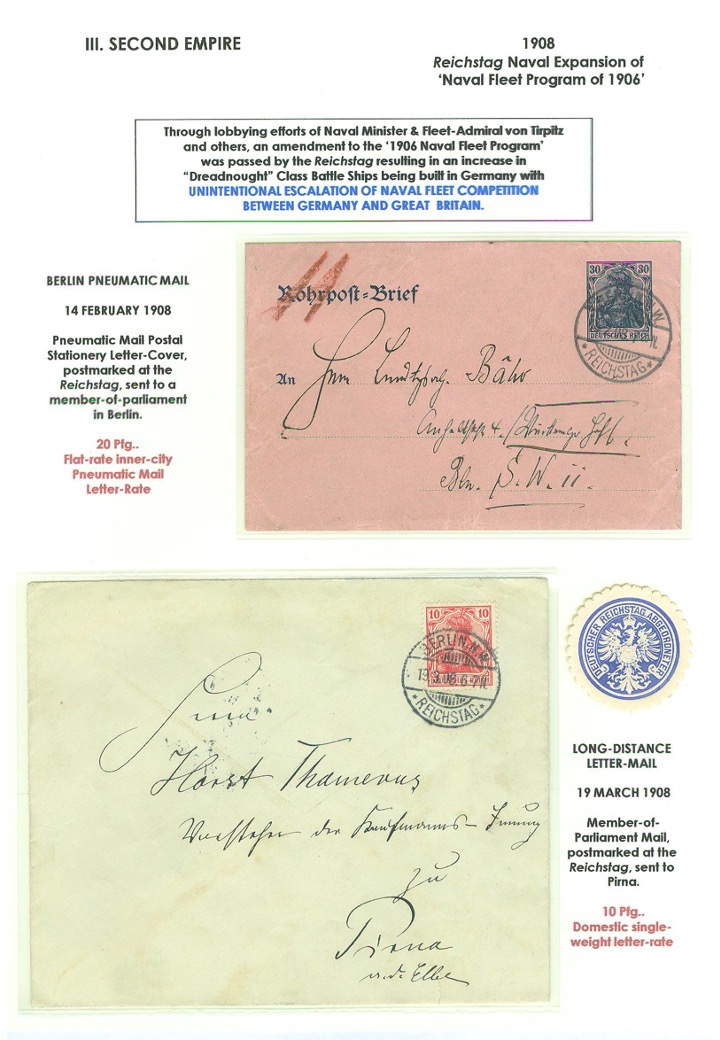 III. SECOND EMPIRE
1908
Reichstag Naval Expansion of
‘Naval Fleet Program of 1906’
Through lobbying efforts of Naval Minister & Fleet-Admiral von Tirpitz
and others, an amendment to the ‘1906 Naval Fleet Program’
was passed by the Reichstag resulting in an increase in
“Dreadnought” Class Battle Ships being built in Germany with
UNINTENTIONAL ESCALATION OF NAVAL FLEET COMPETITION
BETWEEN GERMANY AND GREAT BRITAIN.
BERLIN PNEUMATIC MAIL
14 FEBRUARY 1908
Pneumatic Mail Postal
Stationery Letter-Cover,
postmarked at the
Reichstag, sent to a
member-of-parliament
in Berlin.
20 Pfg..
Flat-rate inner-city
Pneumatic Mail
Letter-Rate
Rohrpost=Brief
30 30
DEUTSCHES REICH
REICHSTAG
An Herrn
Bln. S.W. 11.
10 10
BERLIN N.W.
19.3.08.6-7N.
REICHSTAG
Herrn
Horst Thamerus
Vorsteher der Kaufmanns-Innung
zu
Pirna
a.d. Elbe
DEUTSCHER REICHSTAG ABGEORDNETER
LONG-DISTANCE
LETTER-MAIL
19 MARCH 1908
Member-of-
Parliament Mail,
postmarked at the
Reichstag, sent to
Pirna.
10 Pfg..
Domestic single-
weight letter-rate